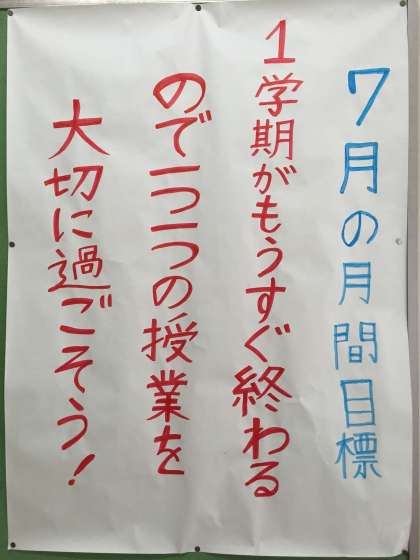 7月の月間目標
1学期がもうすぐ終わる
ので一つ一つの授業を
大切に過ごそう!